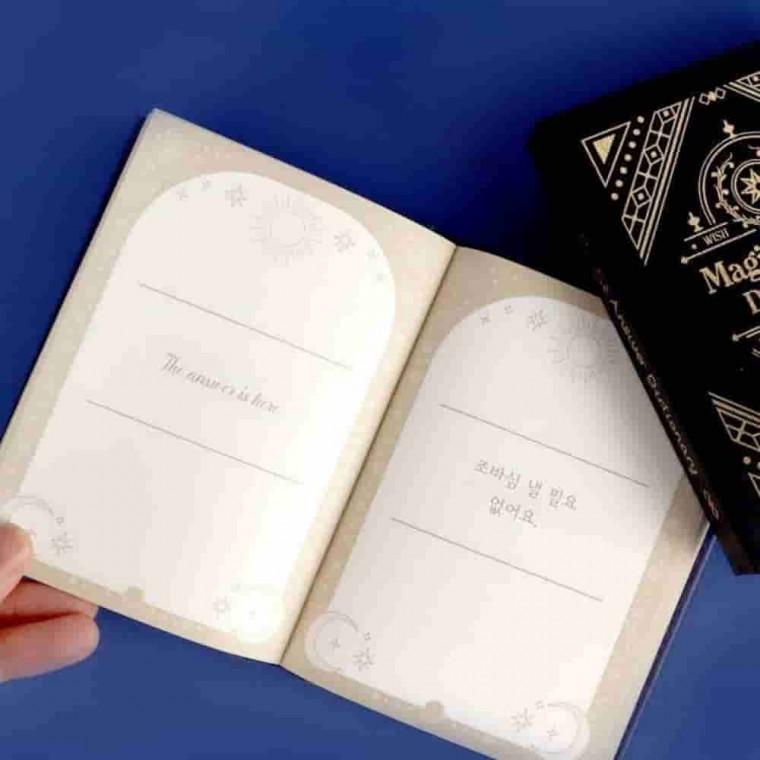 The answer is here
조바심 낼 필요
없어요.
WISH
Magi
D
Answer Dictionary